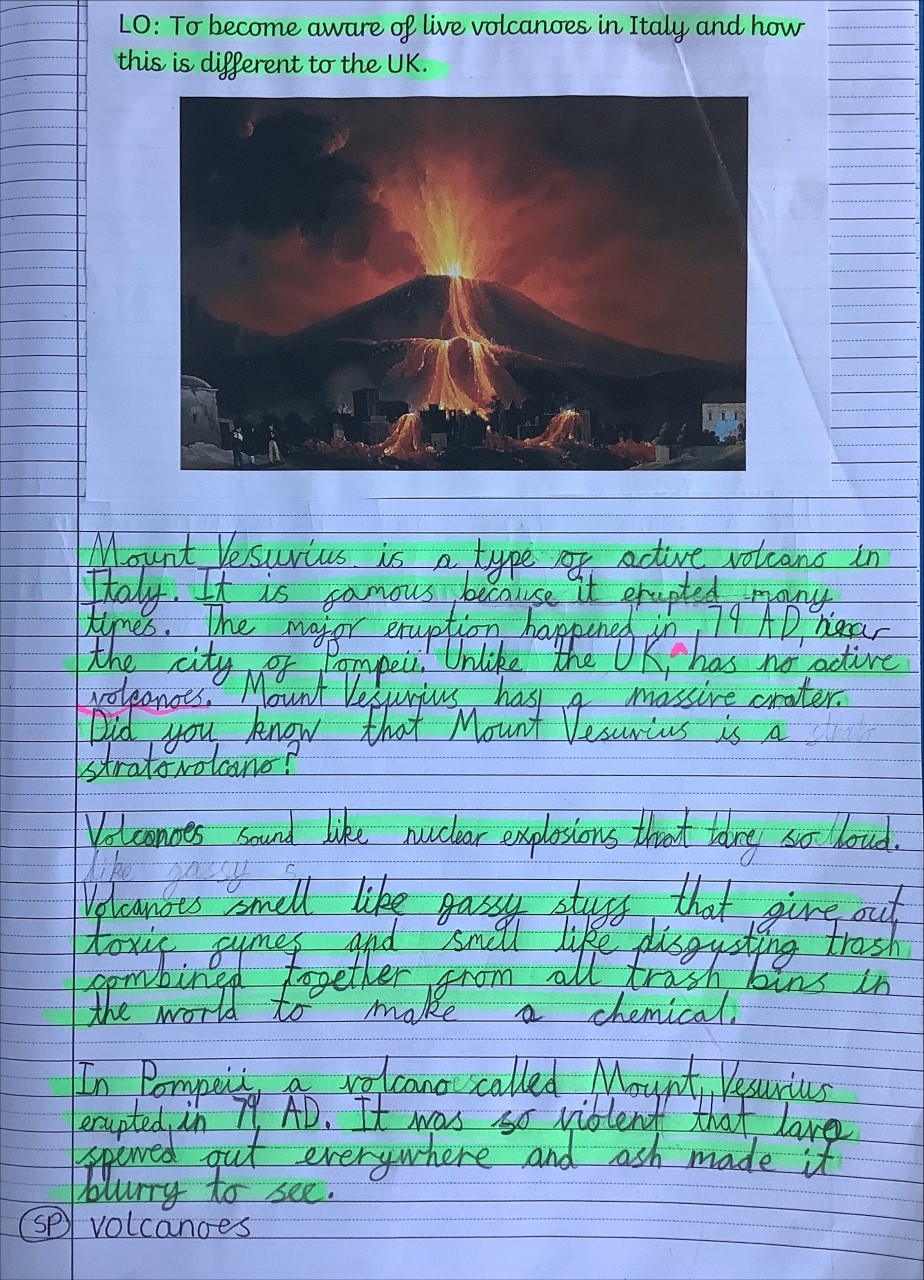 LO: To become aware of live volcanoes in Italy and how
this is different to the UK.
Mount Vesuvius is a type of active volcano in
Italy. It is famous because it erupted many
times. The major eruption happened in 79 AD, near
the city of Pompeii. Unlike the UK, has no active
volcanoes. Mount Vesuvius has a massive crater.
Did you know that Mount Vesuvius is a strato
stratovolcano?
Volcanoes sound like nuclear explosions that so loud.
like gassy s
Volcanoes smell like gassy stuff that give out
toxic fumes and smell like disgusting trash
combined together from all trash bins in
the world to make a chemical.
In Pompeii, a volcano called Mount Vesuvius
erupted in 79 AD. It was so violent that lava
spewed out everywhere and ash made it
blurry to see.
SP volcanoes